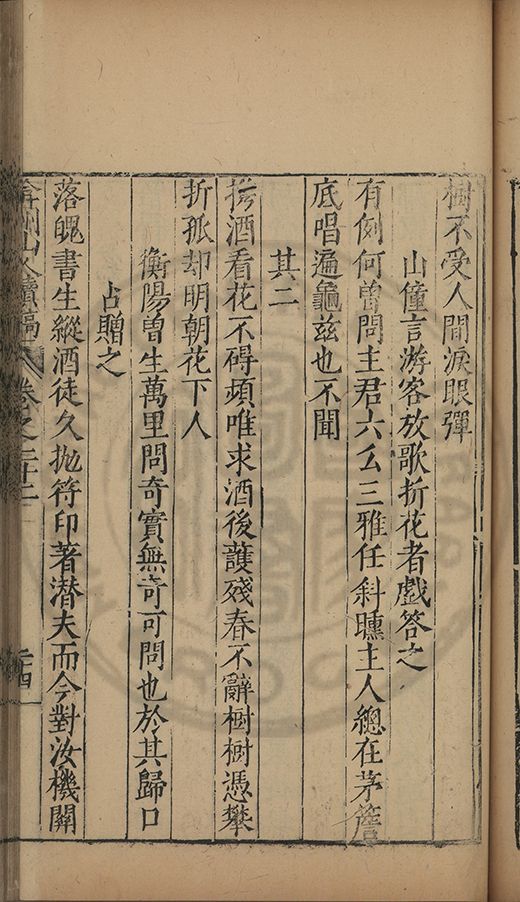 樹不受人間淚眼彈
山僮言游客放歌折花者戲答之
有例何曾問主君六么三雅任斜曛主人總在茅簷
底唱遍龜兹也不聞
其二
携酒看花不碍頻唯求酒後護殘春不辭樹樹憑攀
折孤却明朝花下人
衡陽曾生萬里問奇實無奇可問也於其歸口
占贈之
落魄書生縱酒徒久抛符印著潜夫而今對汝機關
弇州山人續稿 卷之二十二
二十四